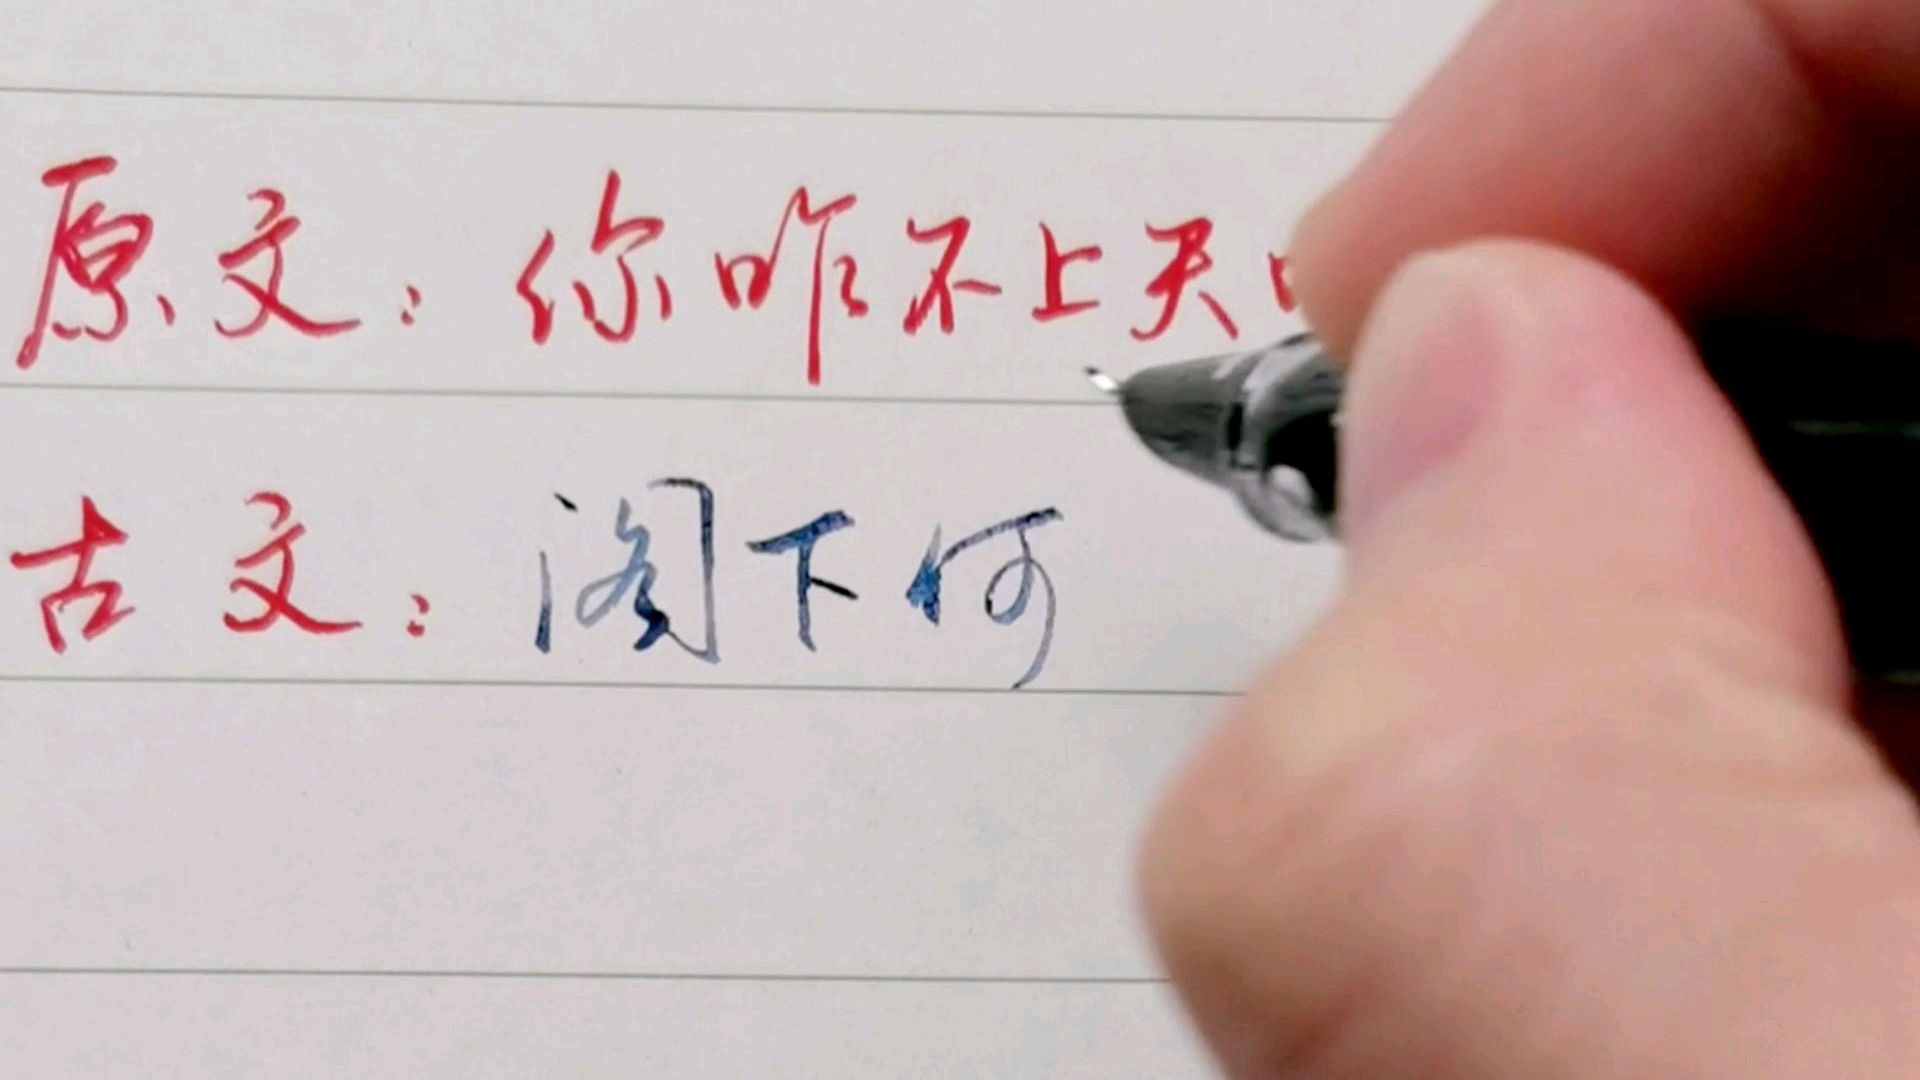 原文：你咋不上天
古文：阁下何